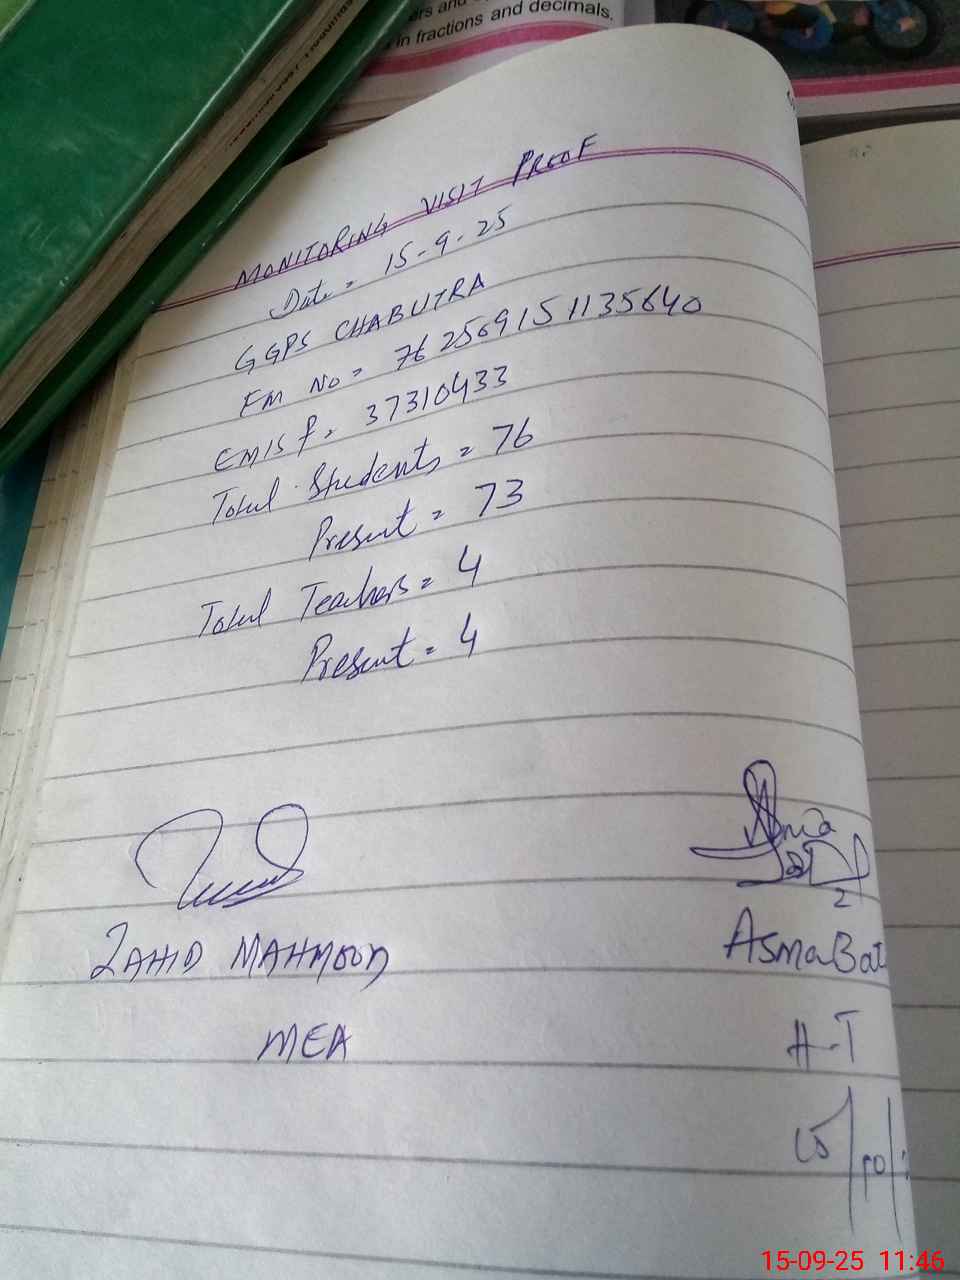 in fractions and decimals.
MONITORING VISIT PROOF
Date = 15-9-25
GGPS CHABUTRA
FM No = 762569151135640
EMIS #= 37310433
Total Students = 76
Present = 73
Total Teachers = 4
Present = 4
ZAHID MAHMOOD
MEA
Asma Bat
H-T
15-09-25 11:46